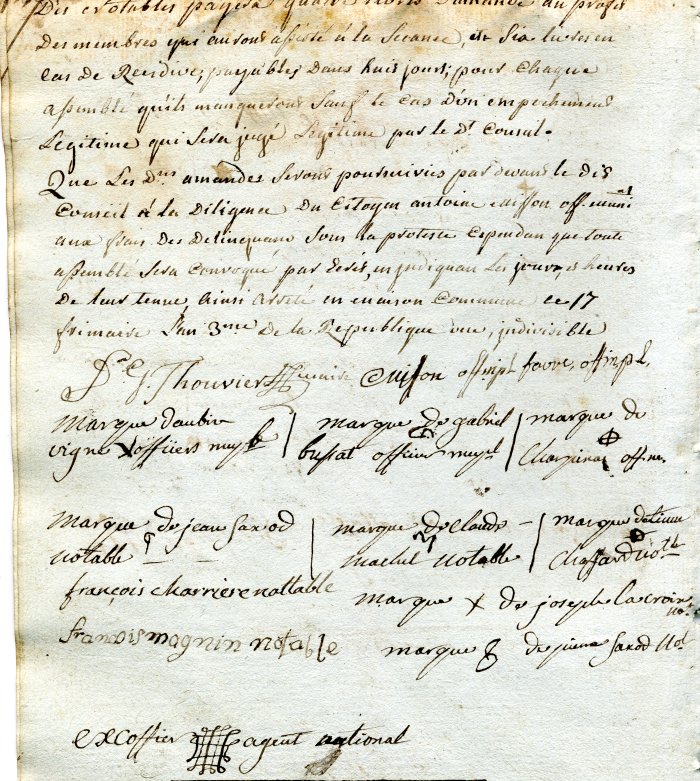 Des notables payera quatre livres d'amande au profit
Des membres qui auront assisté à la Seance, et Six livres en
cas de Recidive, payables Dans huit jours, pour Chaque
assemblé qu'ils manqueront Sauf le cas D'un empechement
Legitime qui Sera jugé Legitime par le dt Conseil.
Que Les Dttes amandes Seront poursuivies par devant le dit
Conseil à la Diligence Du Citoyen antoine off. muni
aux frais Des Delinquans Sous la proteste Cependan que toute
assemblé Sera Convoqué par Ecrit, en jndiquan Les jours, et heures
De leur tenue, Ainsi arreté en maison Commune ce 17
frimaire L'an 3.me De la Republique une, jndivisible
Thouvier maire off mpl favre, off mpl.
Marque daubin marque de gabriel marque de
vigne x officiers mupl bussat officier mupl off m.
Marque de jean saxod marque de Claude marque
notable machet notable Chaffard not.le
françois charriere nottable
marque x de joseph la croix no.
francois magnin notable marque de pierre saxod Not
excoffier agent national